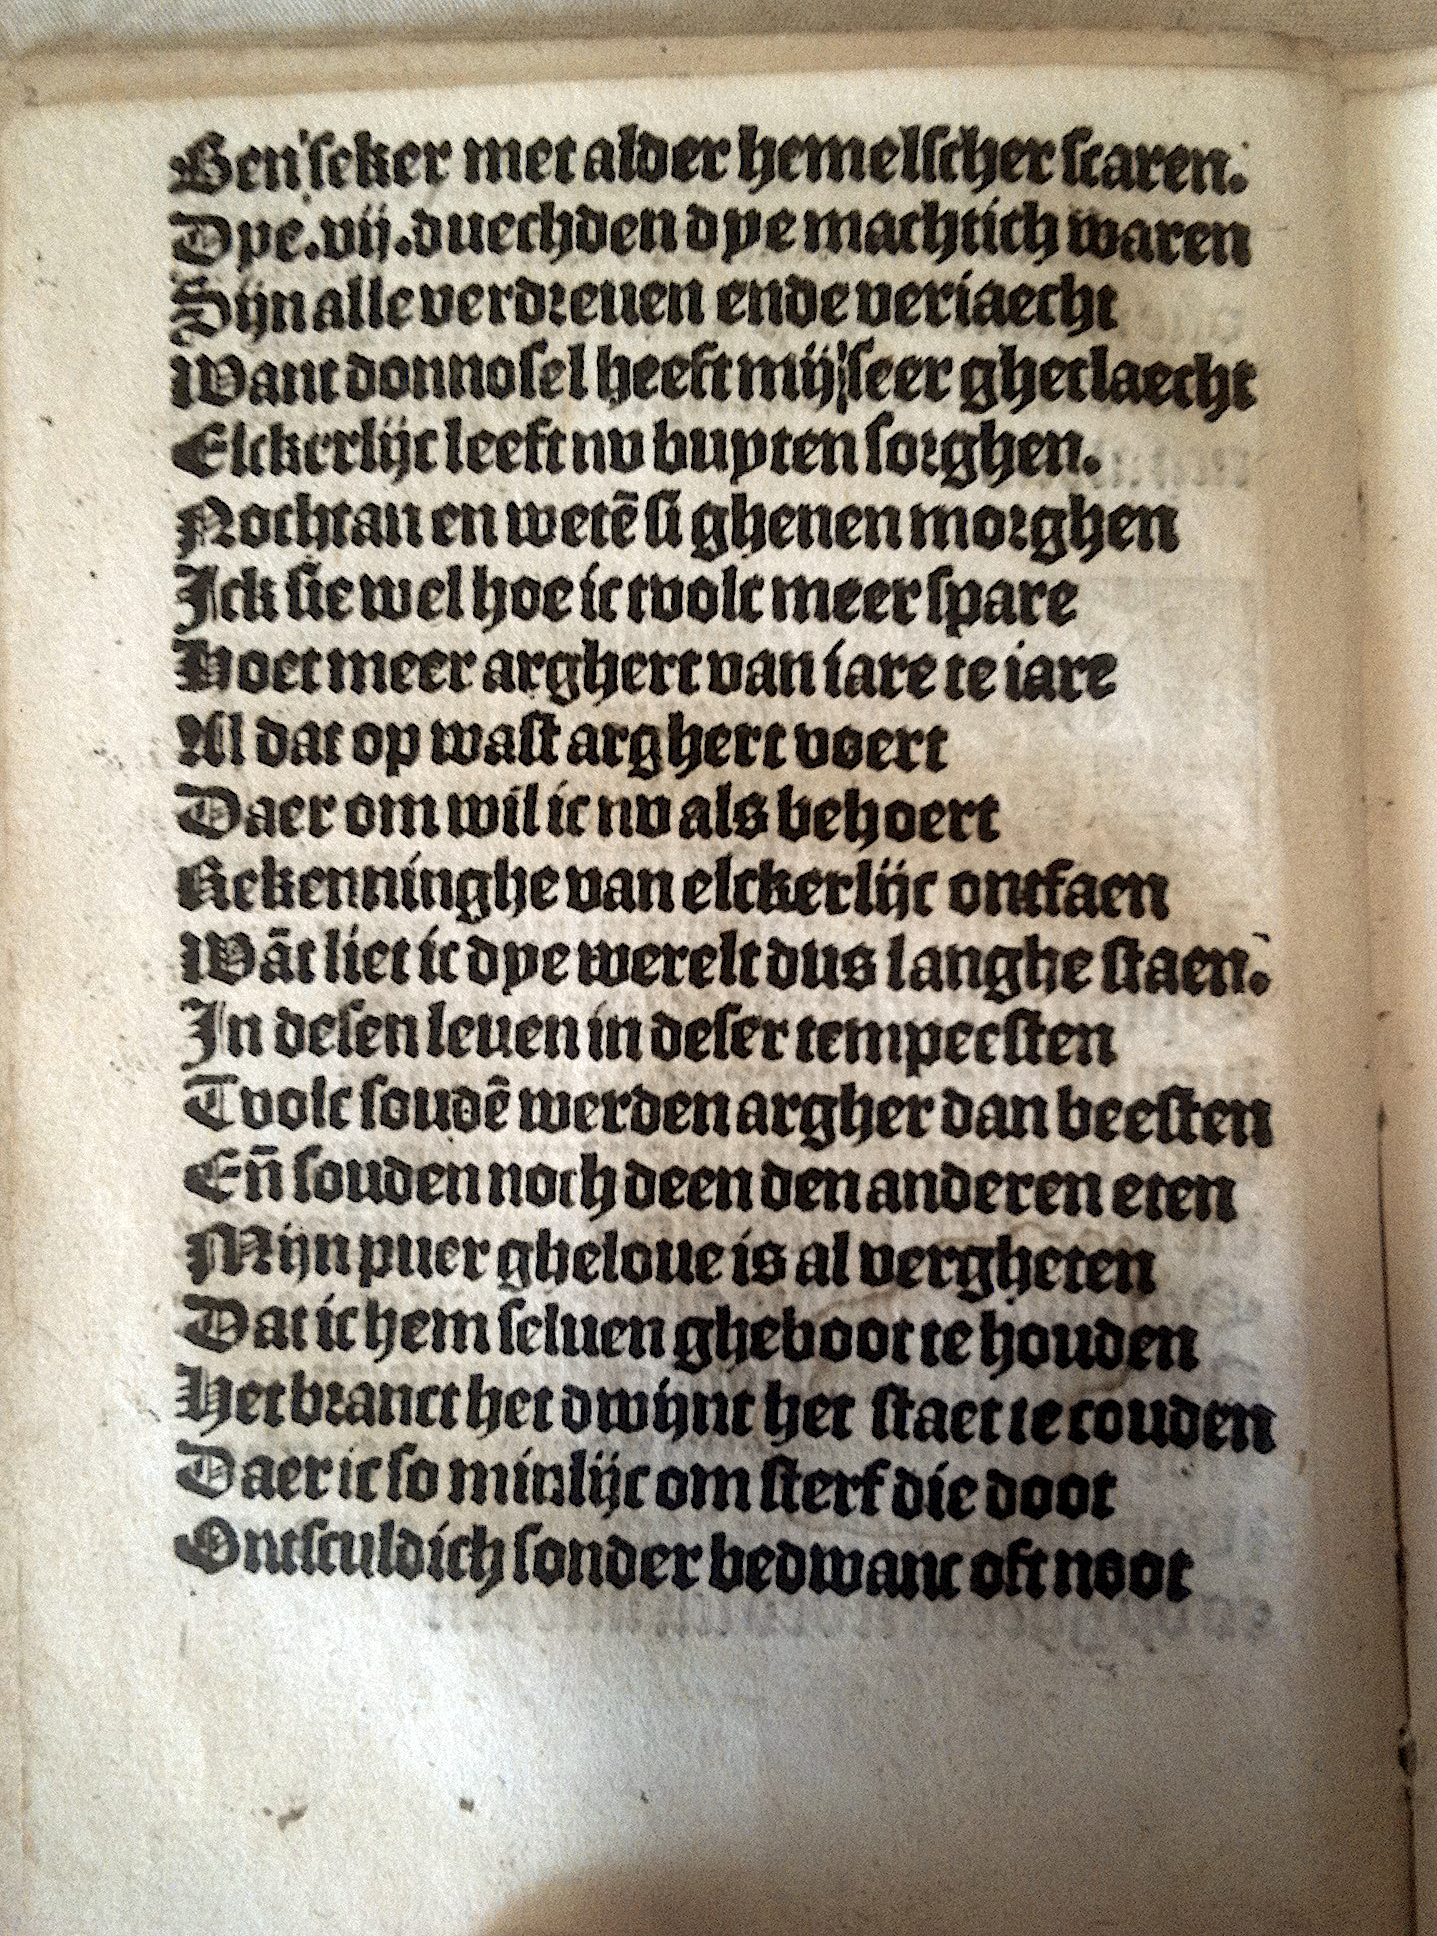 Ben seker met alder hemelscher scaren.
Dye.vij.duechden dye machtich waren
Sijn alle verdreuen ende veriaecht
Want donnosel heeft mij seer gheclaecht
Elckerlijc leeft nv buyten sorghen.
Nochtan en wetē si ghenen morghen
Ick sie wel hoe ic tvolc meer spare
Hoet meer arghert van iare te iare
Al dat op wast arghert voert
Daer om wil ic nv als behoert
Rekenninghe van elckerlijc ontfaen
Wāt liet ic dye werelt dus langhe staen.
In desen leuen in deser tempeesten
Tvolc soudē werden argher dan beesten
Eñ souden noch deen den anderen eten
Mijn puer gheloue is al vergheten
Dat ic hem seluen gheboot te houden
Het cranct het dwijnt het staet te couden
Daer ic so minlijc om sterf die doot
Ontsculdich sonder bedwanc oft noot